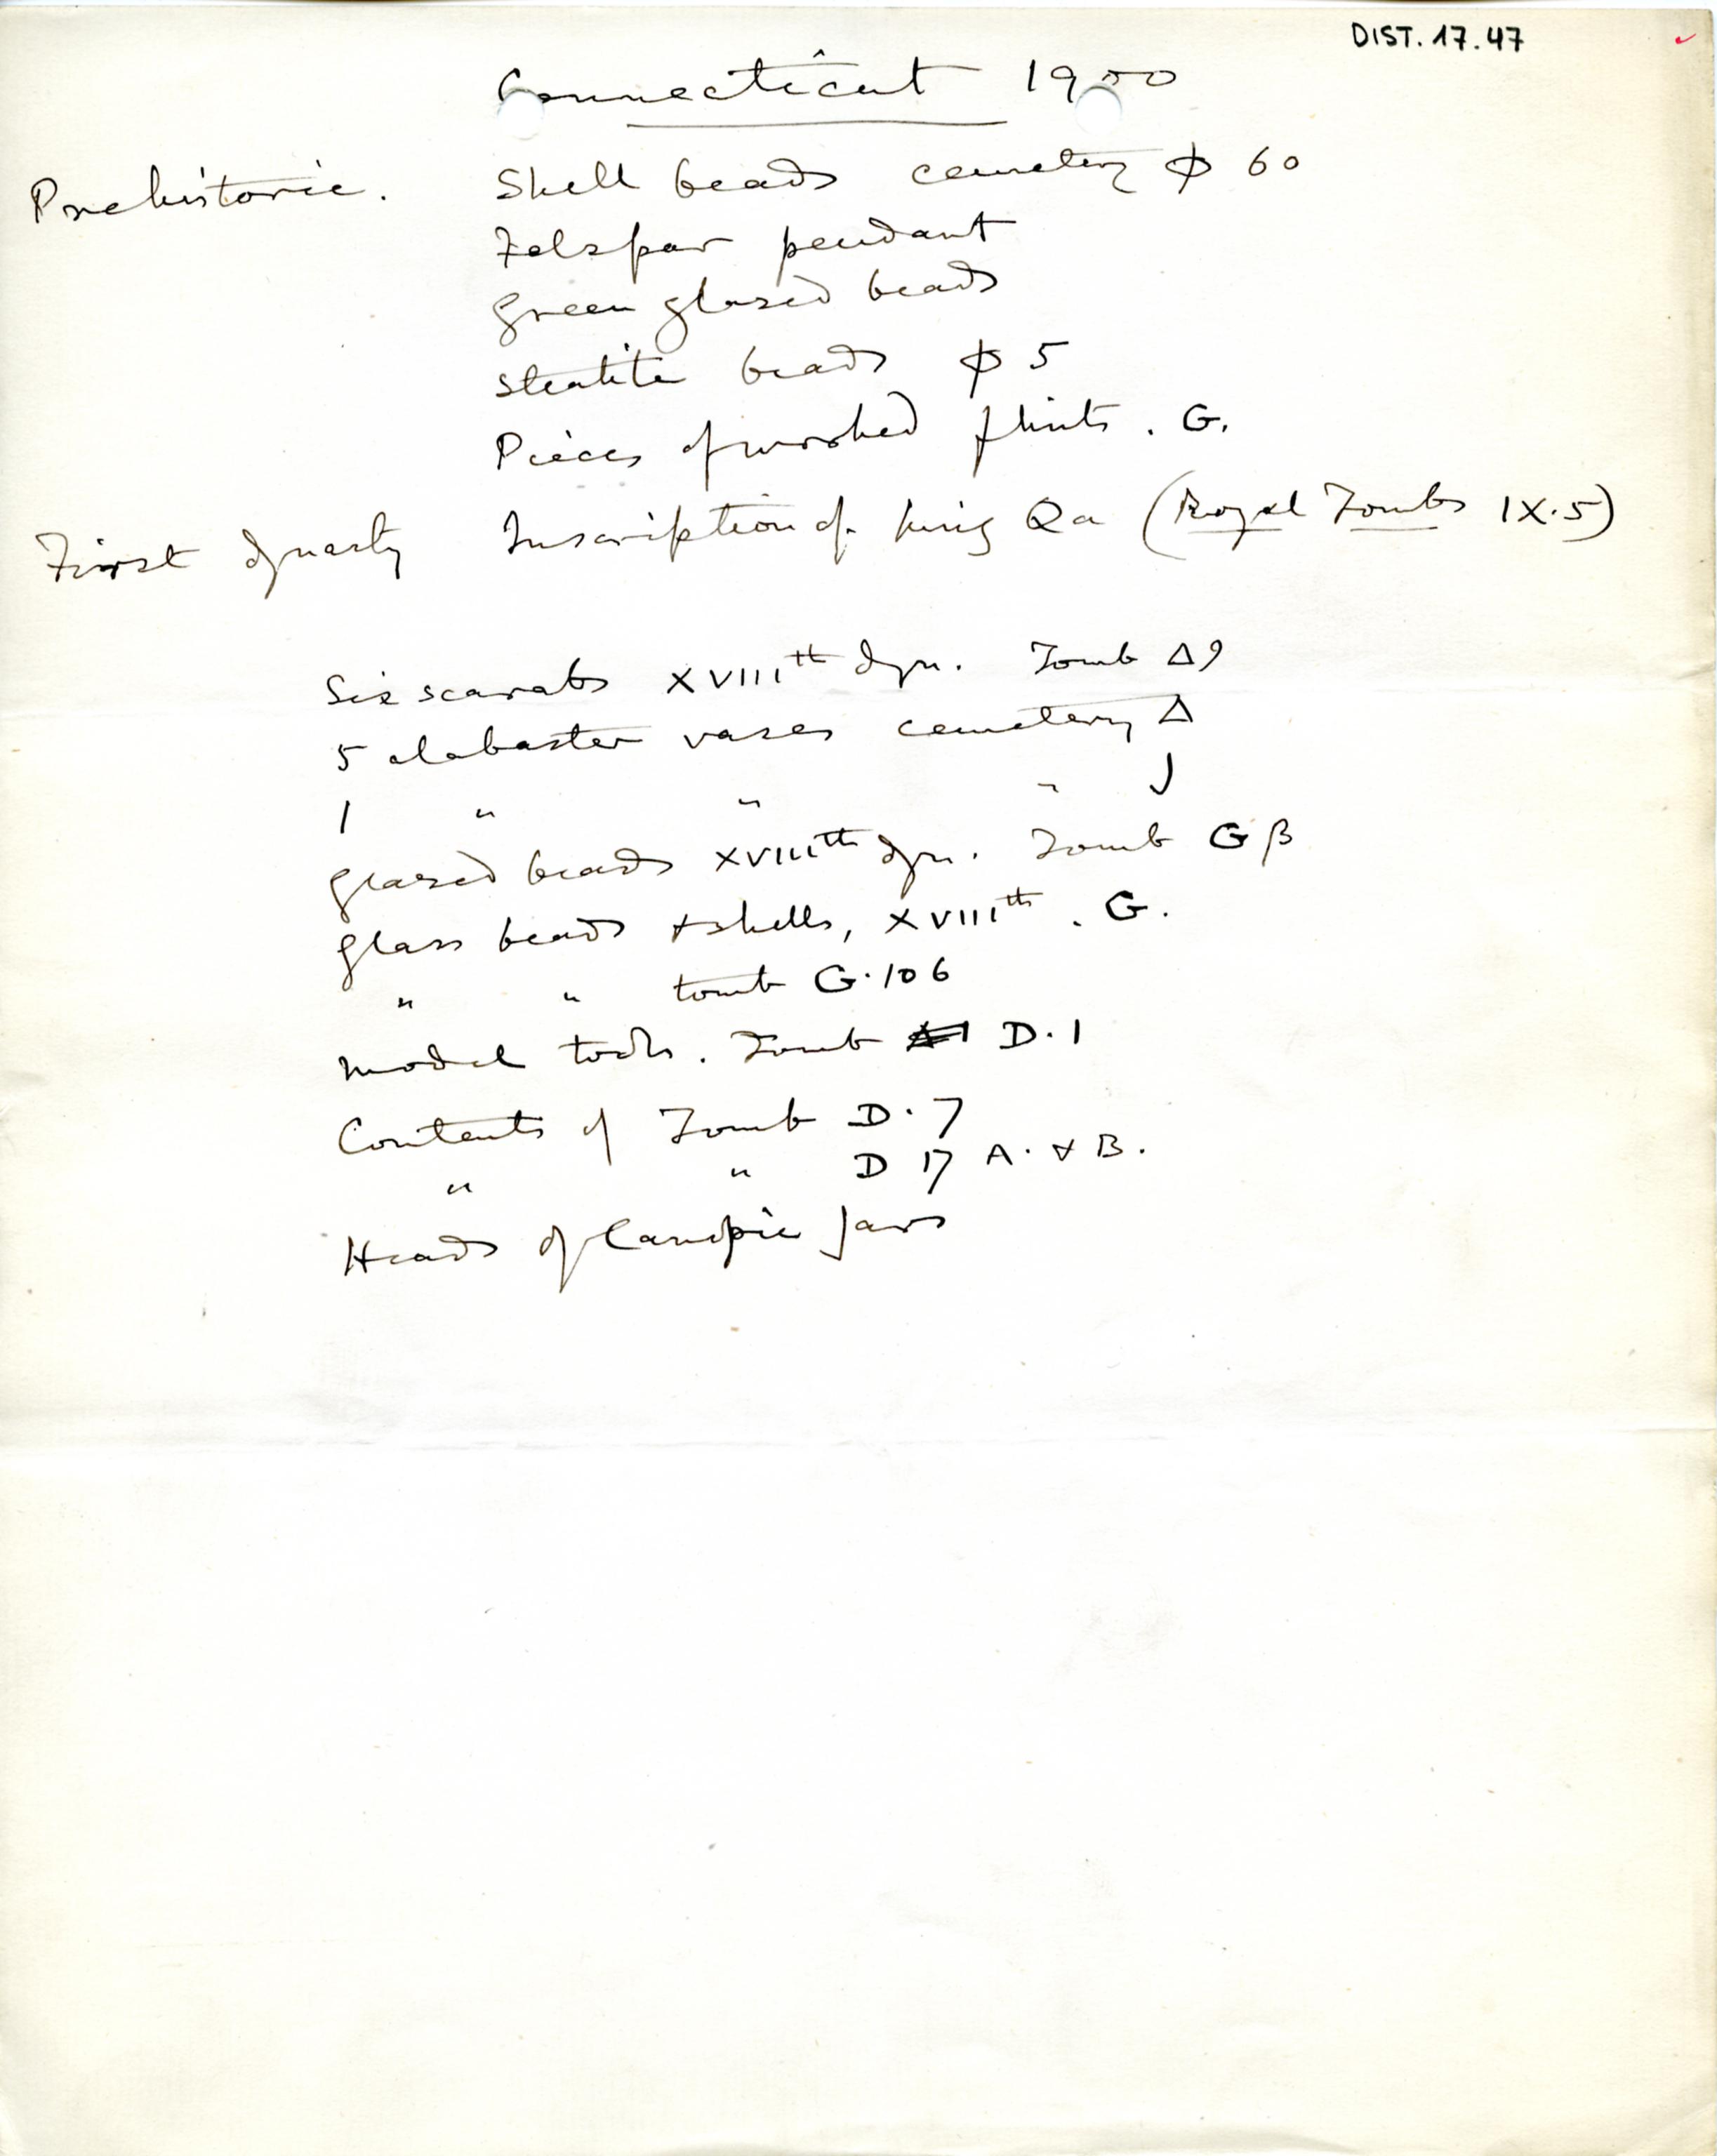 DIST. 17.47
Connecticut 1900
Prehistoric. Shell beads cemetery ϕ 60
Felspar pendant
Green glazed beads
Steatite beads ϕ 5
Pieces of worked flints. G.
First dynasty Inscription of King Qa (Royal Tombs IX.5)
Six scarabs XVIIIth dyn. Tomb Δ9
5 alabaster vases cemetery Δ
1 " " " J
glazed beads XVIIIth dyn. Tomb G β
glass beads + shells, XVIIIth. G.
" " tomb G.106
Model tools. Tomb D.1
Contents of Tomb D.7
" " D 17 A. + B.
Heads of Canopic Jars